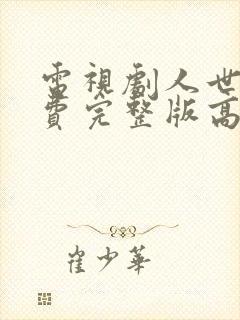 電視劇人世
費完整版高
崔少華